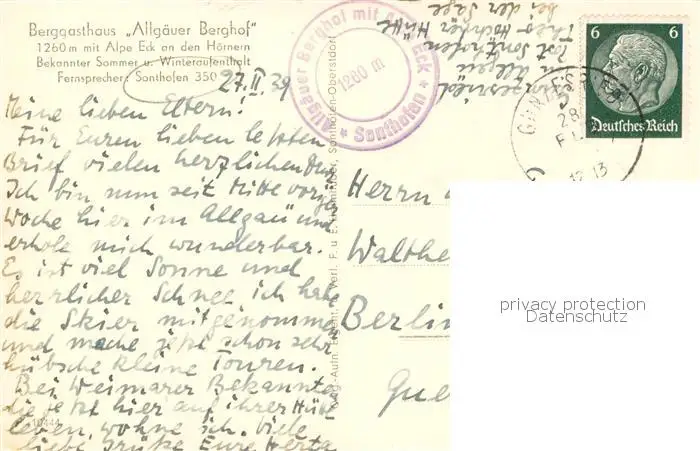 Berggasthaus „Allgäuer Berghof"
1260 m mit Alpe Eck an den Hörnern
Bekannter Sommer u. Winteraufenthalt
Fernsprecher: Sonthofen 350
27.II.39
Meine lieben Eltern!
Für Euren lieben letzten
Brief vielen herzlichen Dank
Ich bin nun seit Mitte voriger
Woche hier im Allgäu und
erhole mich wunderbar.
Es ist viel Sonne und
herrlicher Schnee, ich habe
die Skier mitgenommen
und mache jetzt schon sehr
hübsche kleine Touren.
Bei Weimarer Bekannten
die jetzt hier auf ihrer Hütte
leben, wohne ich. Viele
liebe Grüße Eure Herta
10444
Allgäuer Berghof mit Alpe Eck
1260 m
* Sonthofen *
Post Sonthofen
Theo Hochför Hütte
bei der Säge
Sonthofen-Oberstdorf
6 6
Deutsches Reich
28.
12-13
Herrn
Walthe
Berlin
Que
privacy protection
Datenschutz